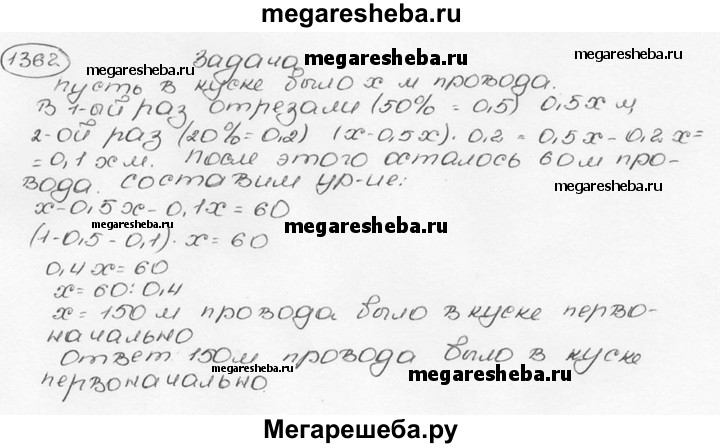 megaresheba.ru
1362 Задача
megaresheba.ru
megaresheba.ru
Пусть в куске было х м провода.
В 1-ый раз отрезали (50% = 0,5) 0,5х м,
megaresheba.ru
2-ой раз (20% = 0,2) (х-0,5х)·0,2 = 0,5х-0,2х=
= 0,1 х м. После этого осталось 60 м про-
вода. Составим ур-ие:
megaresheba.ru
х-0,5х-0,1х = 60
megaresheba.ru
megaresheba.ru
(1-0,5-0,1)·х = 60
0,4х = 60
х = 60:0,4
х = 150 м провода было в куске перво-
начально
Ответ 150м провода было в куске
megaresheba.ru
megaresheba.ru
первоначально.
Мегарешеба.ру